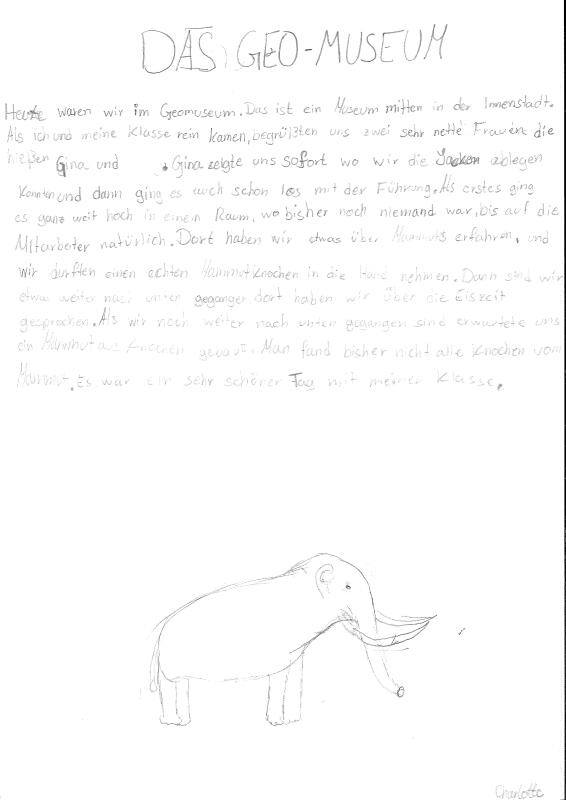 DAS GEO-MUSEUM
Heute waren wir im Geomuseum. Das ist ein Museum mitten in der Innenstadt.
Als ich und meine Klasse rein kamen, begrüßten uns zwei sehr nette Frauen die
hießen Gina und . Gina zeigte uns sofort wo wir die Jacken ablegen
konnten und dann ging es auch schon los mit der Führung. Als erstes ging
es ganz weit hoch in einem Raum, wo bisher noch niemand war, bis auf die
Mitarbeter natürlich. Dort haben wir etwas über Mammuts erfahren, und
wir durften einen echten Mammutknochen in die Hand nehmen. Dann sind wir
etwas weiter nach unten gegangen, dort haben wir über die Eiszeit
gesprochen. Als wir noch weiter nach unten gegangen sind erwartete uns
ein Mammut aus Knochen gebaut. Man fand bisher nicht alle Knochen vom
Mammut. Es war ein sehr schöner Tag mit meiner Klasse.
Charlotte